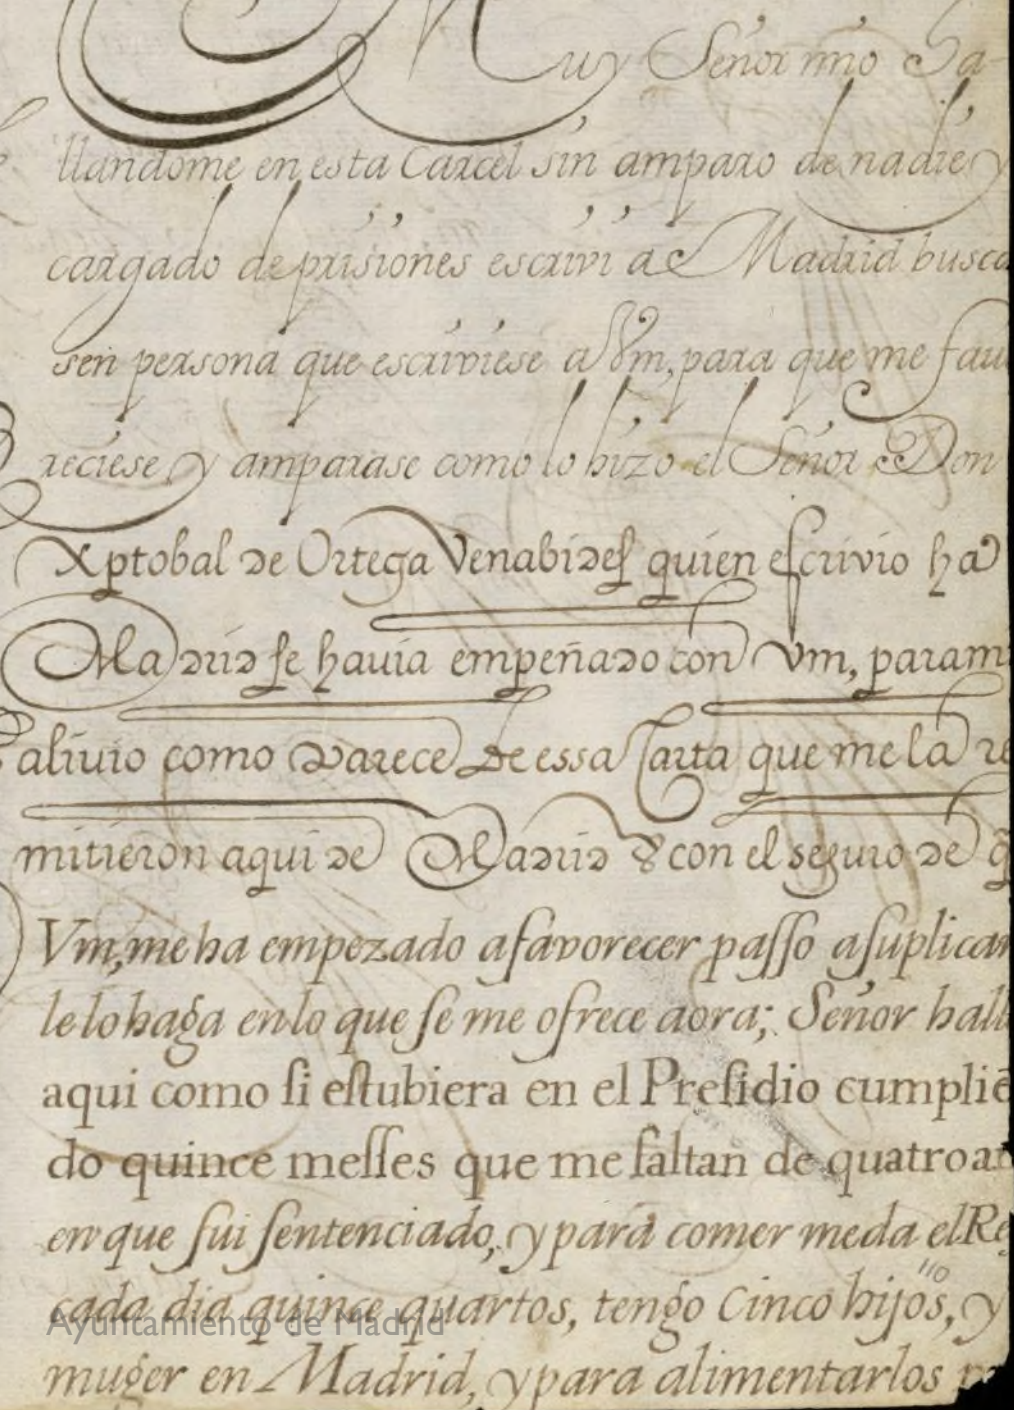 Muy Señor mio Ha-
llandome en esta Carcel sin amparo de nadie y
cargado de prisiones escrivi a Madrid busca
sen persona que escriviese a Vm, para que me fau
reciese y amparase como lo hizo el Señor Don
Xptobal de Ortega Venabides quien escrivio ha
Madrid se hauia empeñado con Vm, para mi
aliuio como parece de essa Carta que me la re
mitieron aqui de Madrid & con el seguro de q̃
Vm, me ha empezado a favorecer passo a suplicar
le lo haga en lo que se me ofrece aora; Señor hall
aqui como si estubiera en el Presidio cumpliē
do quince messes que me faltan de quatro añ
en que fui sentenciado, y para comer me da el Re
cada dia quince quartos, tengo Cinco hijos, y
muger en Madrid, y para alimentarlos
Ayuntamiento de Madrid